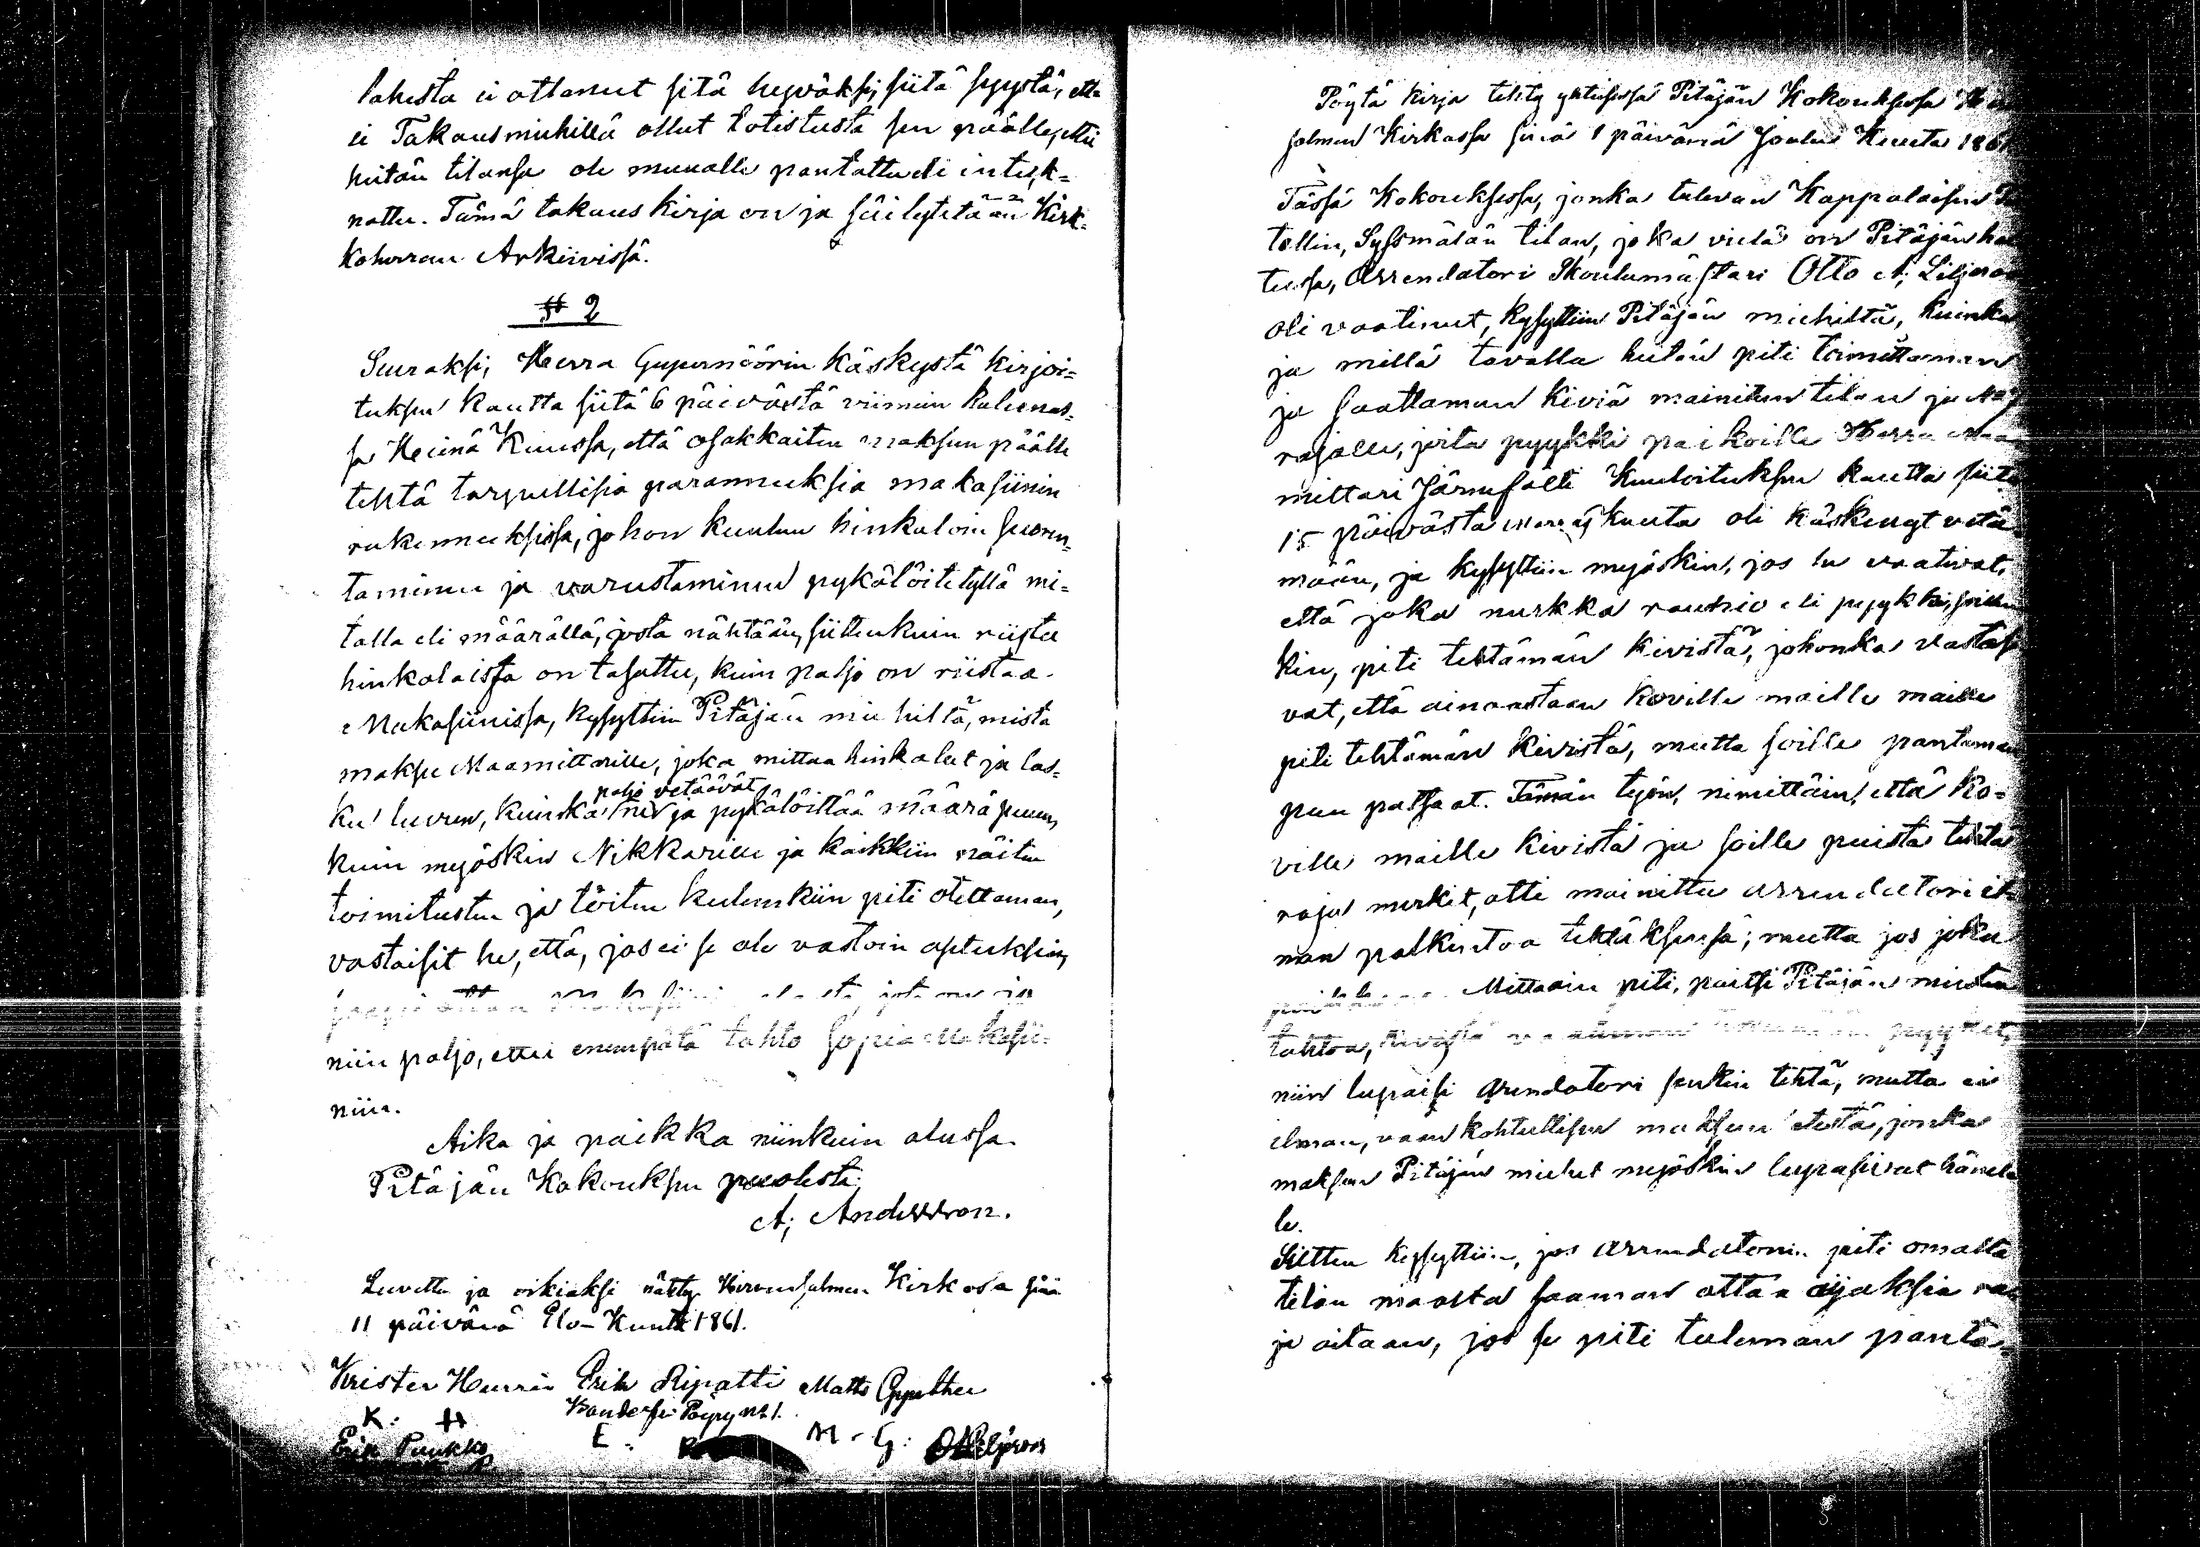 lahesta ei ottanut sitä hyväksi, siitä syystä, että
ei Takausmiehillä ollut totistusta sen päälle, ettei
heitän tilansa ole muualle pantattu eli inteik=
nattu. Tämä takaus kirja on ja säilytetään Kirk=
koherran Arkiivissä.
§ 2
Seuraksi, Herra Guvernöörin käskystä kirjoi=
tuksen kautta siitä 6 päivästä viimein kulienas=
sa Heinä Kuussa, että osakkaiten maksun päälle
tehtä tarpellisia parannuksia makasiinin
rakennuksissa, johon kuuluu hinkaloin suoren=
taminen ja varustaminen pykälöitetyllä mi=
talla eli määrällä, josta nähtään, sittenkuin riista
hinkaloissa on tasattu, kuin paljo on riistaa
Makasiinissa, kysyttiin Pitäjän miehiltä, mistä
maksu Maamittarille, joka mittaa hinkalot ja las=
paljo vetäävät
ku luvun, kuinka ne ja pykälöittää määrä puun,
kuin myöskin Nikkarille ja kaikkiin näiten
toimitusten ja töiten kulunkiin piti otettaman,
vastaisit he, että, jos ei se ole vastoin asetuksia,
niin paljo, ettei enempätä tahto sopia Makasii=
niin.
Aika ja paikka niinkuin alussa.
Pitäjän Kokouksen puolesta:
A; Andersson.
Luvettu ja oikiaksi nähty Hirvensalmen Kirkosa sinä
11 päivänä Elo-Kuuta 1861.
Krister Hurri Erik Ripatti Matts Gynther
K: H
E: R
M: G: O A Liljeroos
Erik Puukko
Pöytä kirja tehty yhteisessä Pitäjän Kokouksessa
salmen Kirkossa sinä 1 päivänä Joulu Kuuta 186
Tässä Kokouksessa, jonka tulevan Kappalaisen
tellin, Syssmälän tilan, joka vielä on Pitäjän hal
tussa, Arrendatori Skoulumästari Otto A; Liljeroos
oli vaatinut, kysyttiin Pitäjän miehiltä, kuinka
ja millä tavalla heitän piti toimittaman
ja saattaman kiviä mainitun tilan ja
rajalle, joita pyykki paikoille Herra Maa
mittari Järnefelti Kuuloituksen kautta siitä
15 päivästä Marras kuuta oli käskenyt vetä
mään, ja kysyttiin myöskin, jos he vaativat,
että joka nurkka rauhio eli pyykki,
kin, piti tehtämän kivistä, johonka vastasi
vat, että ainoastaan koville maille maille
piti tehtämän kivistä, mutta soille pantaman
puu patsaat. Tämän työn, nimittäin, että Ko=
ville maille kivistä ja soille puista tehtä
raja merkit, otti mainittu arrendatori il
man palkintoa tehtäksensä; mutta jos joku
Mittarin piti, paitsi Pitäjän miesten
tahtoa, kivistä pyykit,
niin lupaisi Arrendatori senkin tehtä, mutta ei
ilman, vaan kohtullisen maksun etestä, jonka
maksun Pitäjän miehet myöskin lupasivat hänel
le.
Sitten kysyttiin, jos Arrendatorin piti omalta
tilan maalta saaman ottaa aijaksia
ja aitaan, jos se piti tuleman pantä=